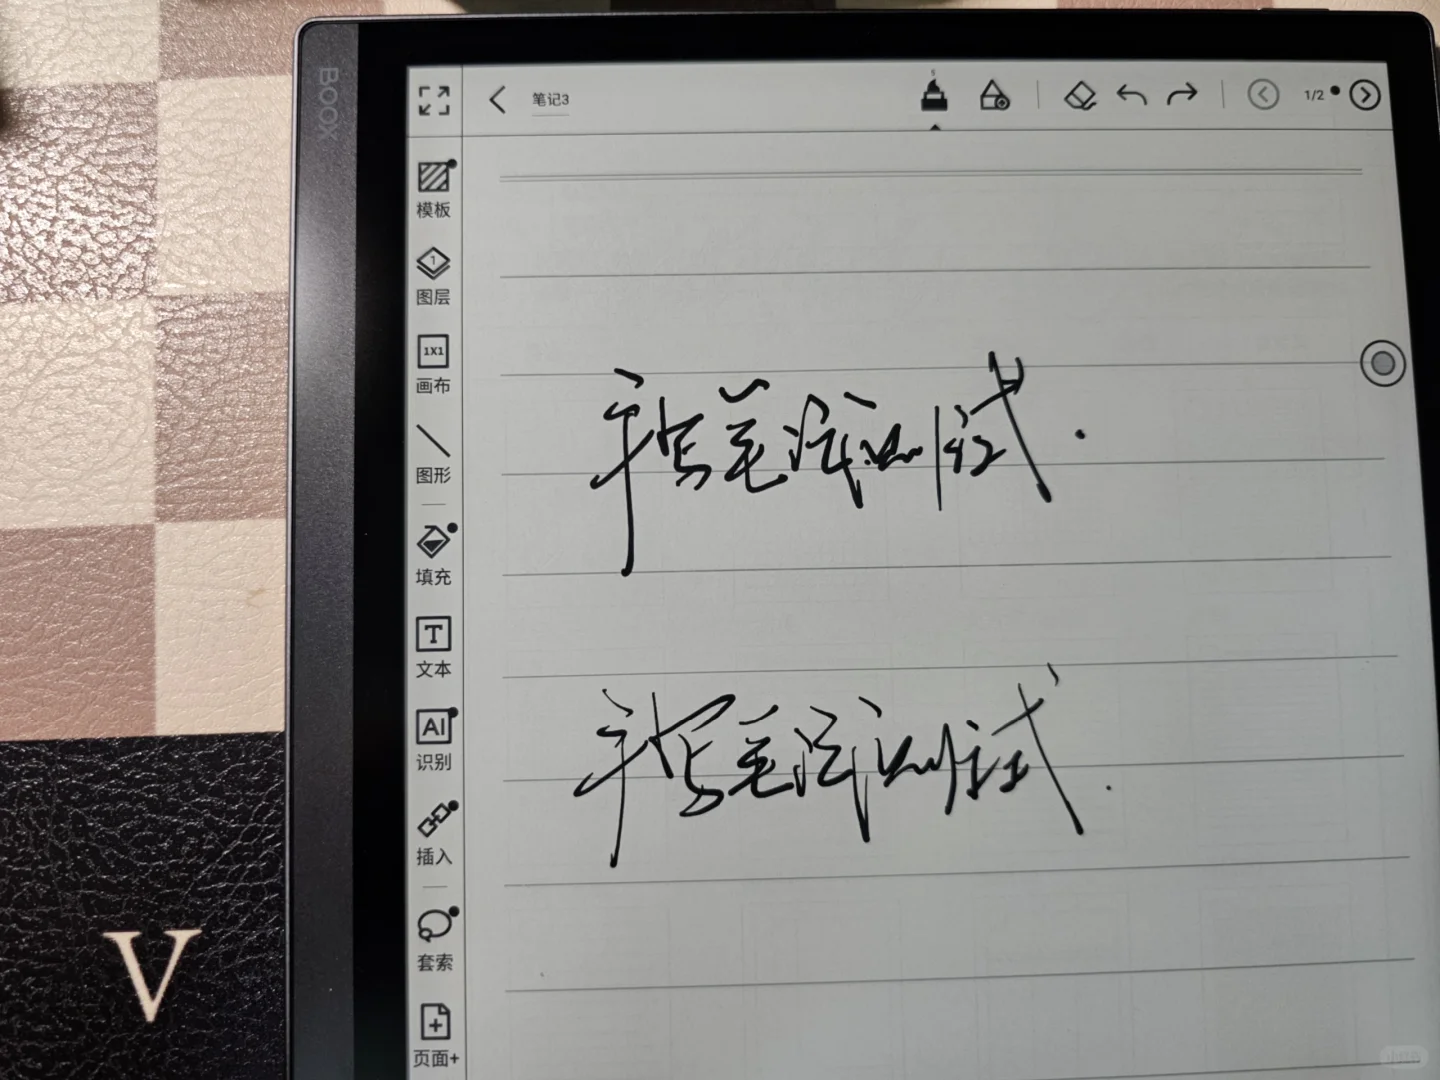 BOOX
笔记3
1/2
模板
1
图层
1X1
画布
图形
填充
T
文本
AI
识别
插入
套索
页面+
手写笔迹测试.
手写笔迹测试.
V
小红书